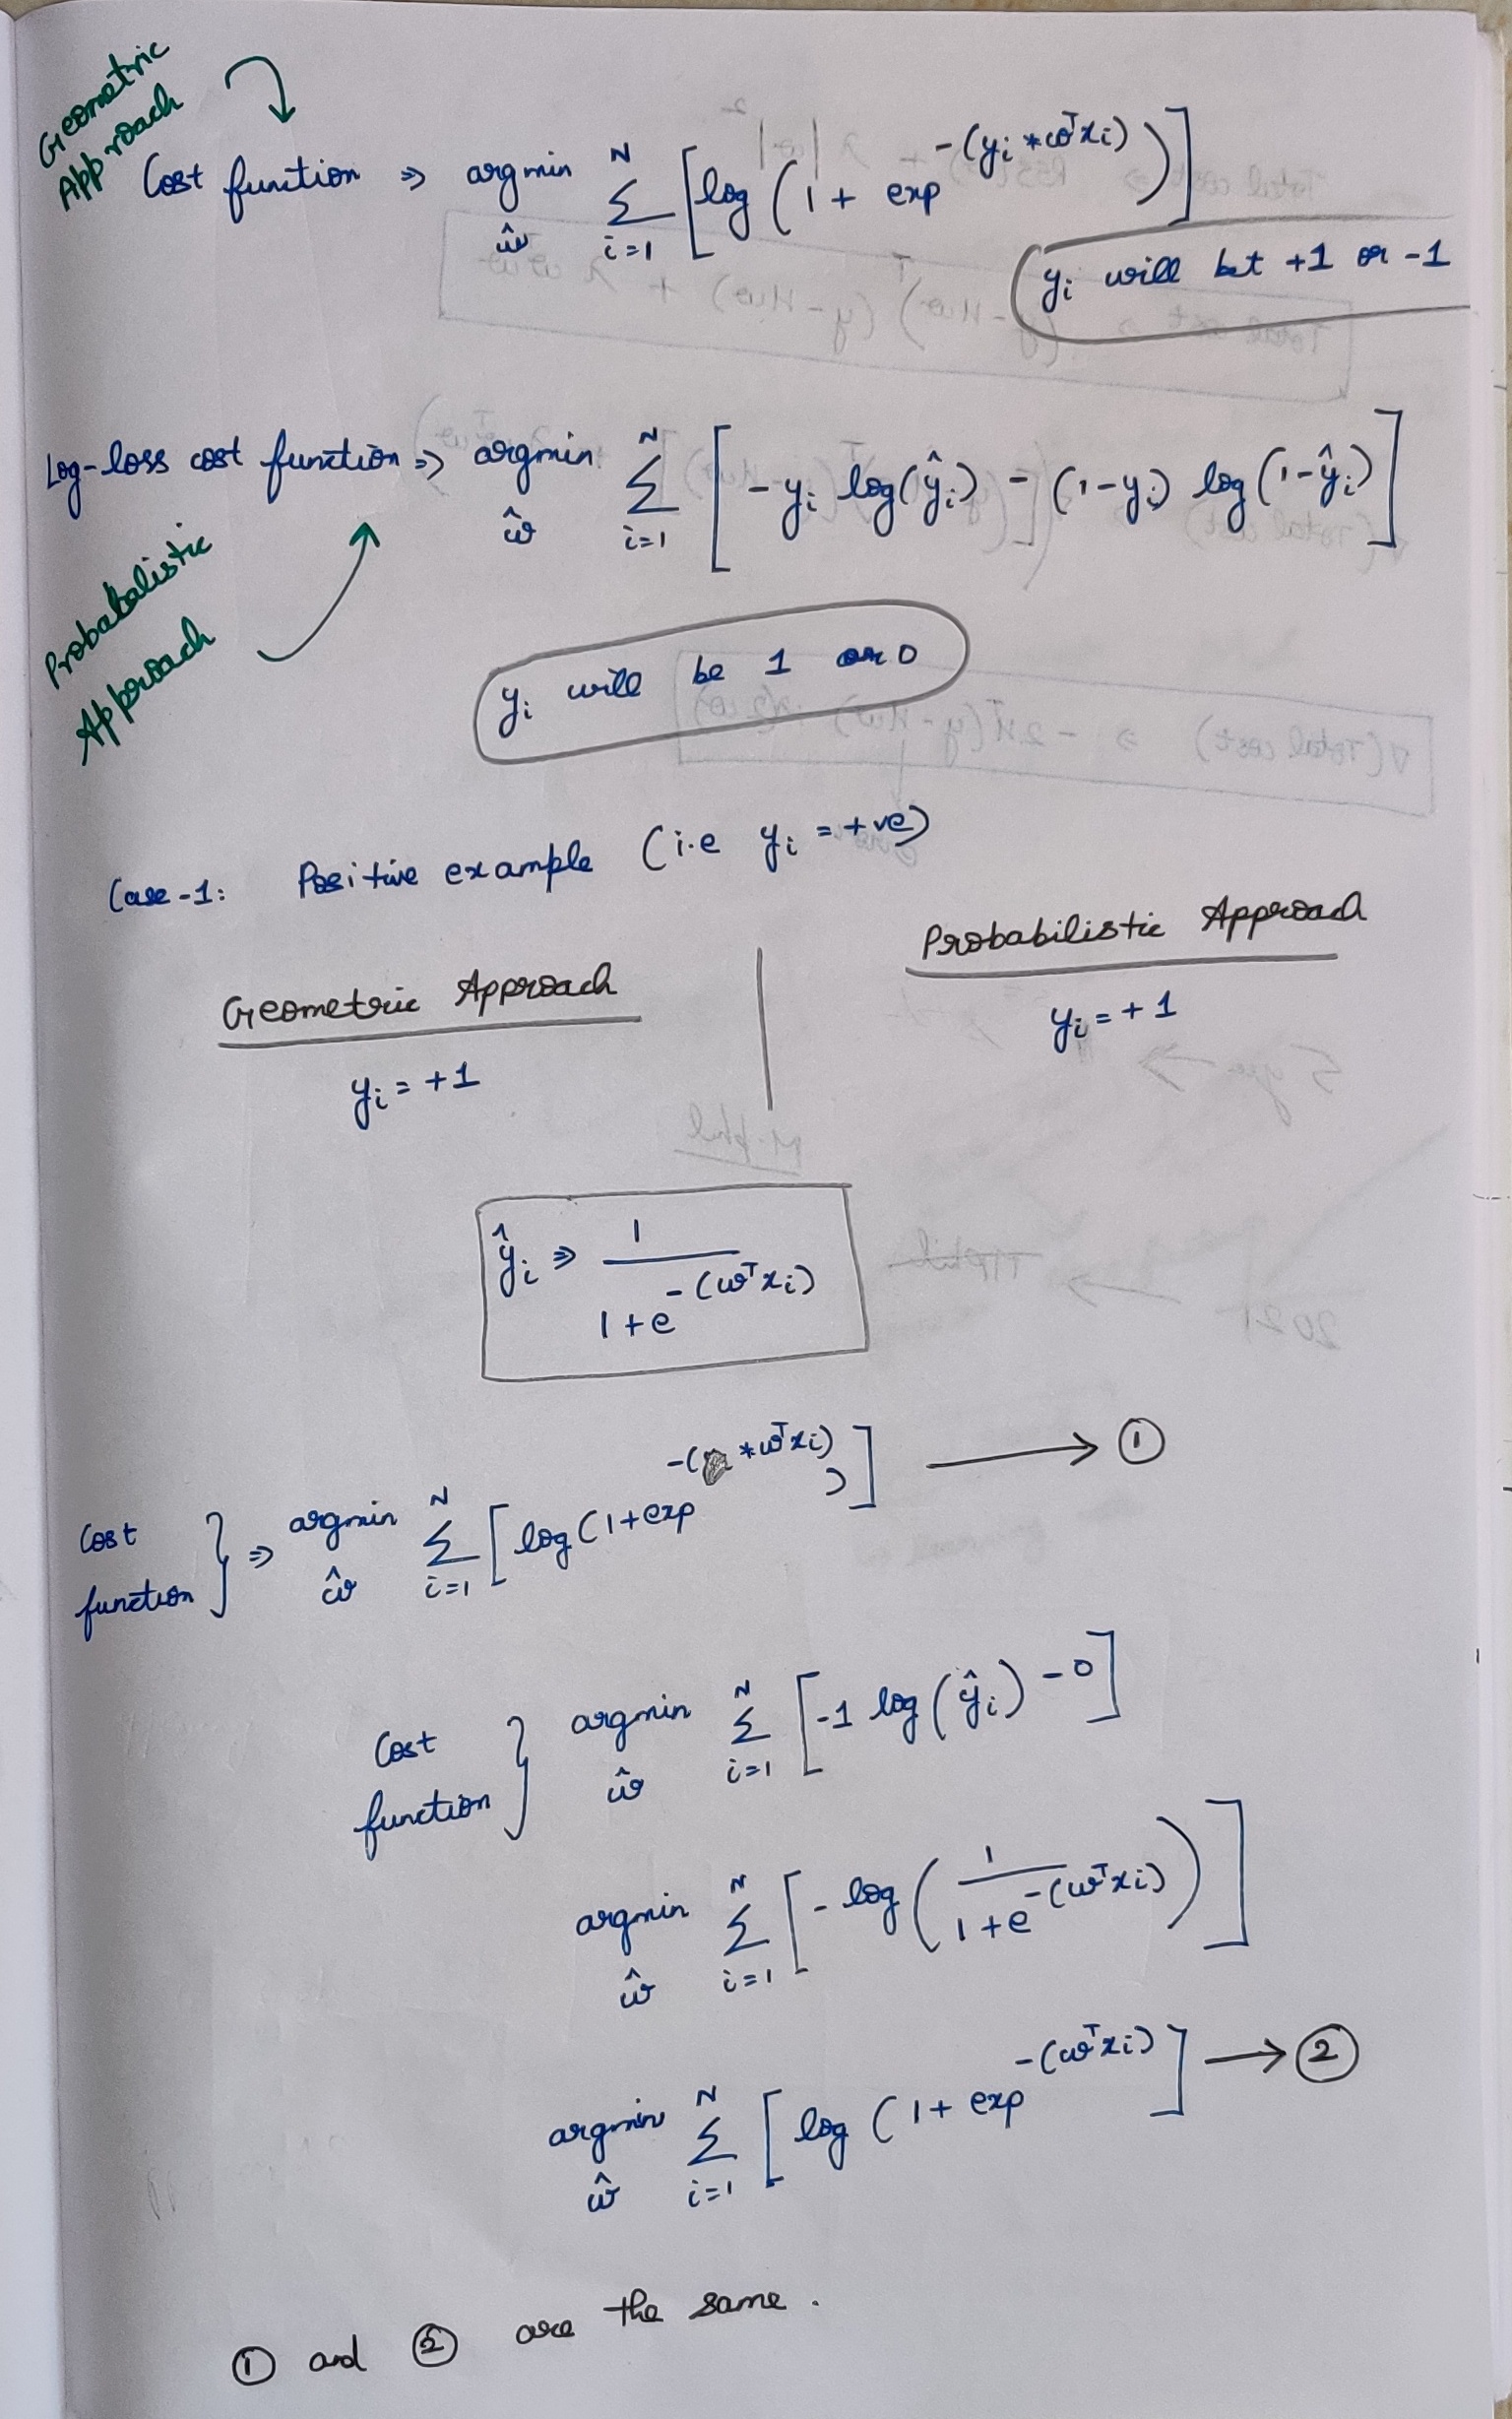 Geometric
Approach
Cost function ⇒ argmin_ŵ Σ_{i=1}^{N} [log(1 + exp^{-(y_i * w^T x_i)})]
y_i will bet +1 or -1
Log-loss cost function ⇒ argmin_ŵ Σ_{i=1}^{N} [-y_i log(ŷ_i) - (1-y_i) log(1-ŷ_i)]
Probabalistic
Approach
y_i will be 1 or 0
Case-1: Positive example (i.e y_i = +ve)
Geometric Approach
Probabilistic Approach
y_i = +1
y_i = +1
ŷ_i ⇒ 1 / (1+e^{-(w^T x_i)})
Cost function } ⇒ argmin_ŵ Σ_{i=1}^{N} [log(1+exp^{-( * w^T x_i)})] → ①
Cost function } argmin_ŵ Σ_{i=1}^{N} [-1 log(ŷ_i) - 0]
argmin_ŵ Σ_{i=1}^{N} [-log(1 / (1+e^{-(w^T x_i)}))]
argmin_ŵ Σ_{i=1}^{N} [log(1+exp^{-(w^T x_i)}] → ②
① and ② are the same.